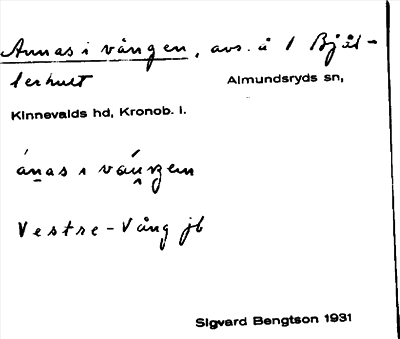 Annas i vången, avs. å 1 Bjäl-
lerhult Almundsryds sn,
Kinnevalds hd, Kronob. l.
ánas i
Vestre-Vång jb
Sigvard Bengtson 1931